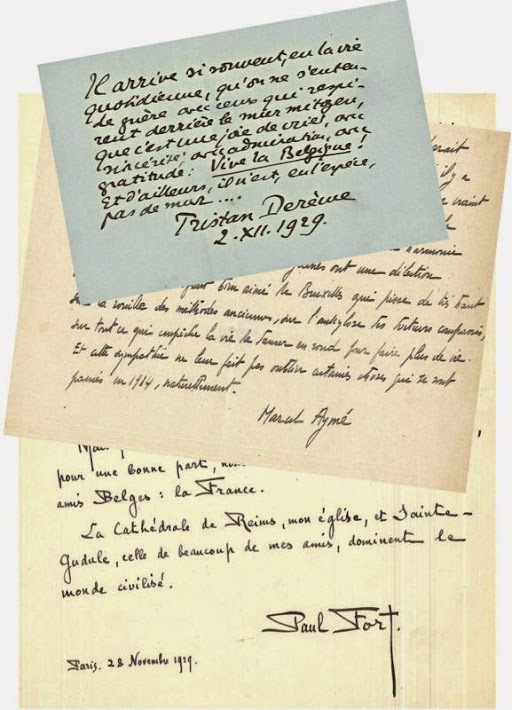 Il arrive si souvent, en la vie
quotidienne, qu'on ne s'enten-
de guère avec ceux qui respi-
rent derrière le mur mitoyen,
que c'est une joie de crier, avec
sincérité, avec admiration, avec
gratitude: Vive la Belgique!
Et d'ailleurs, il n'est, en l'espèce,
pas de mur....
Tristan Derème
2. XII. 1929.
il y a
craint
harmonie
ont une dilection
bien aimé le Bruxelles qui pisse de très haut
sur la rouille des méthodes anciennes, sur l'ankylose des
sur tout ce qui empêche la vie de danser en rond pour faire plus de vie.
Et cette sympathie ne leur fait pas oublier certaines choses qui se sont
passées en 1914, naturellement.
Marcel Aymé
pour une bonne part,
amis Belges: la France.
La Cathédrale de Reims, mon église, et Sainte-
Gudule, celle de beaucoup de mes amis, dominent le
monde civilisé.
Paul Fort.
Paris. 28 Novembre 1929.